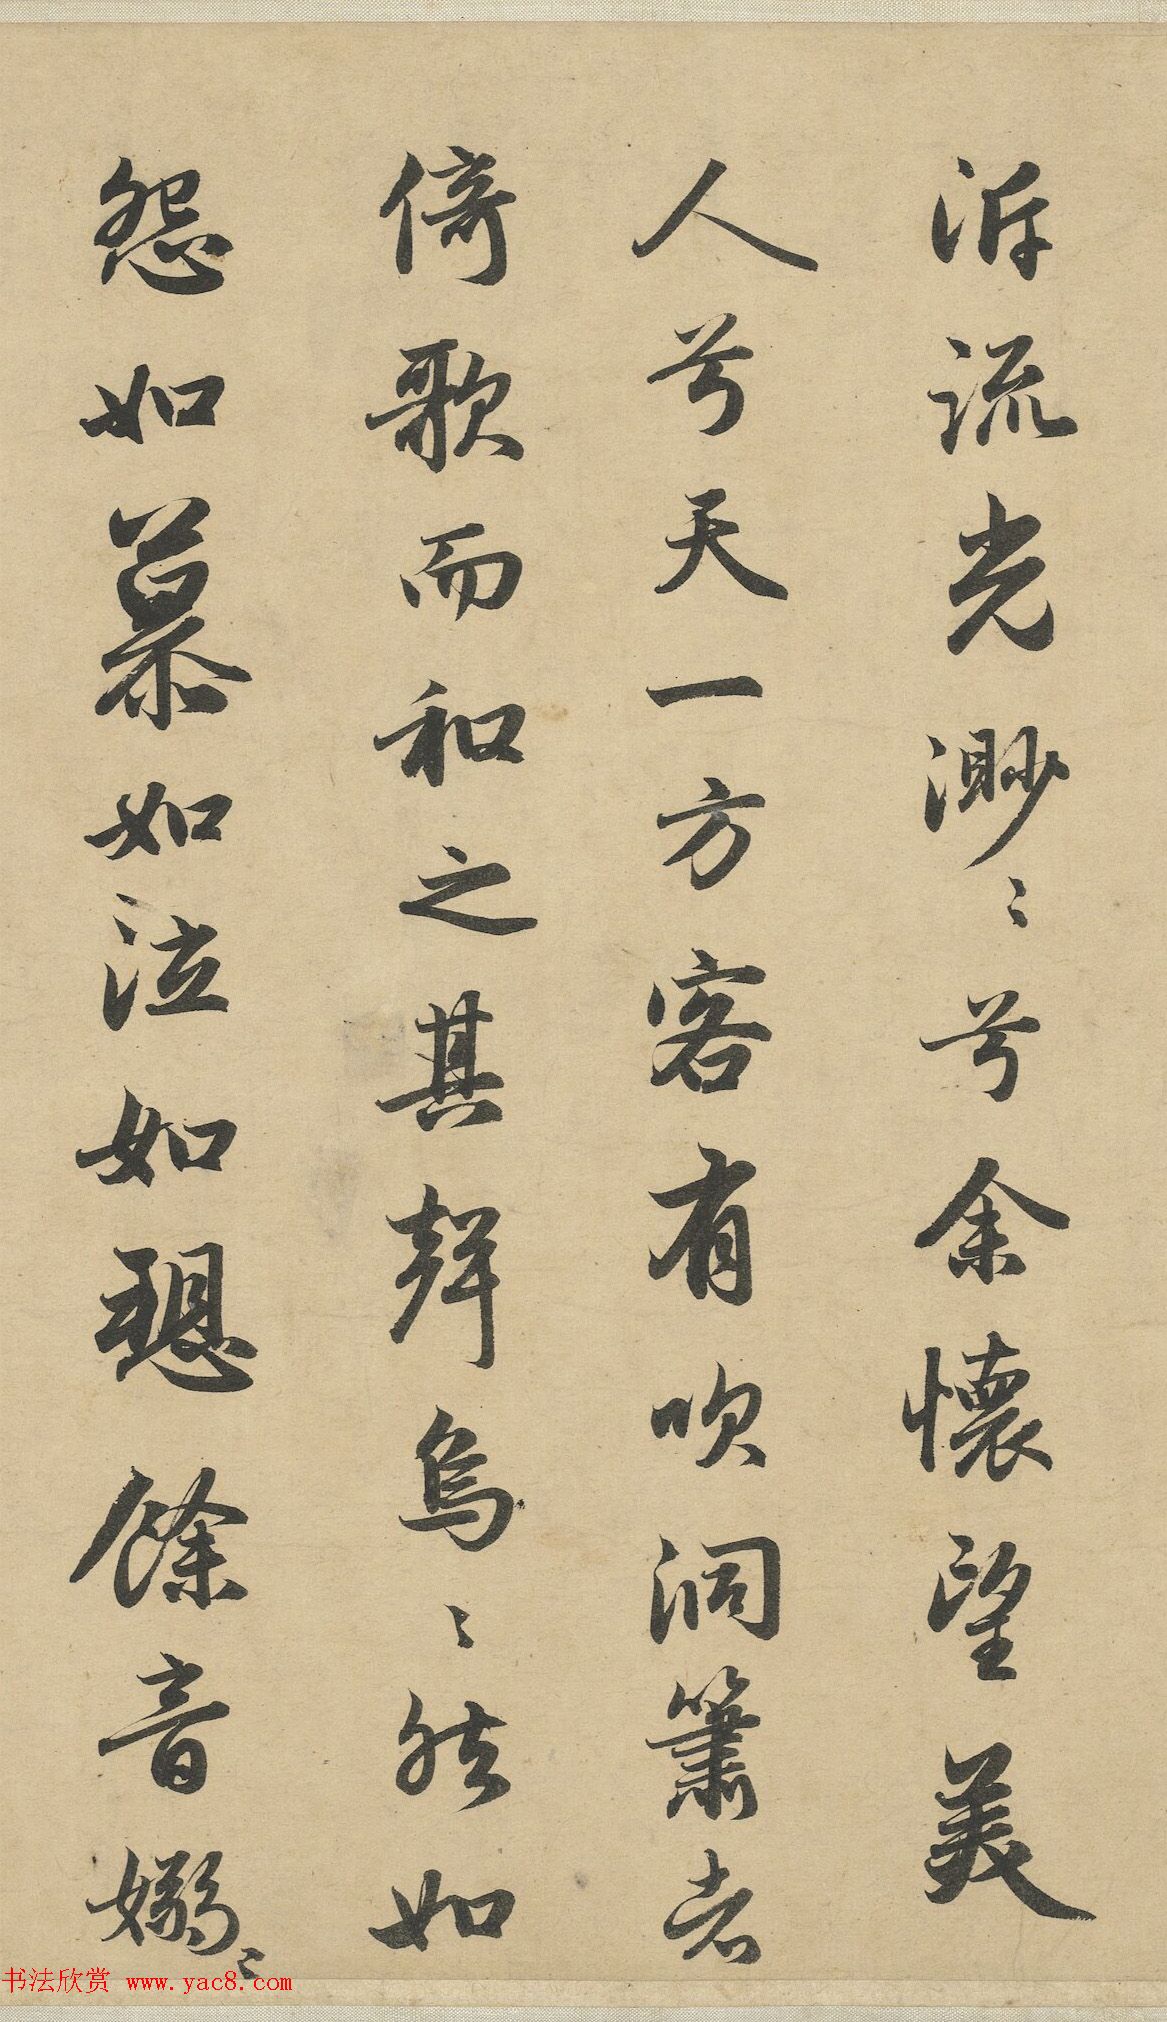 泝流光渺〻兮余懷望美
人兮天一方客有吹洞簫者
倚歌而和之其聲烏〻然如
怨如慕如泣如餘音嫋〻
书法欣赏 www.yac8.com